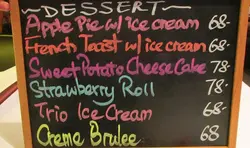 ~DESSERT~
Apple Pie w/ ice cream 68-
French Toast w/ ice cream 68-
Sweet Potato Cheese Cake 78-
Strawberry Roll 78-
Trio Ice Cream 68-
Creme Brulee 68